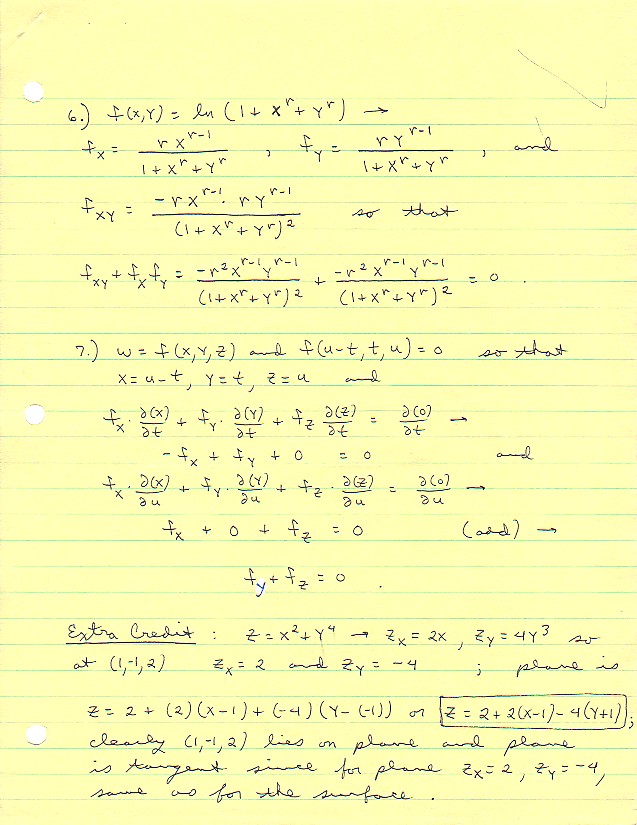 6.) f(x,y) = ln (1 + x^r + y^r) →
f_x = r x^(r-1) / (1 + x^r + y^r) , f_y = r y^(r-1) / (1 + x^r + y^r) , and
f_xy = -r x^(r-1) · r y^(r-1) / (1 + x^r + y^r)^2 so that
f_xy + f_x f_y = -r^2 x^(r-1) y^(r-1) / (1 + x^r + y^r)^2 + -r^2 x^(r-1) y^(r-1) / (1 + x^r + y^r)^2 = 0 .
7.) w = f(x,y,z) and f(u-t, t, u) = 0 so that
x = u-t, y = t, z = u and
f_x · ∂(x)/∂t + f_y · ∂(y)/∂t + f_z ∂(z)/∂t = ∂(0)/∂t →
- f_x + f_y + 0 = 0 and
f_x · ∂(x)/∂u + f_y · ∂(y)/∂u + f_z · ∂(z)/∂u = ∂(0)/∂u →
f_x + 0 + f_z = 0 (add) →
f_y + f_z = 0 .
Extra Credit : z = x^2 + y^4 → z_x = 2x , z_y = 4y^3 so
at (1,-1,2) z_x = 2 and z_y = -4 ; plane is
z = 2 + (2)(x-1) + (-4)(y-(-1)) or z = 2 + 2(x-1) - 4(y+1) ;
clearly (1,-1,2) lies on plane and plane
is tangent since for plane z_x = 2 , z_y = -4 ,
same as for the surface .